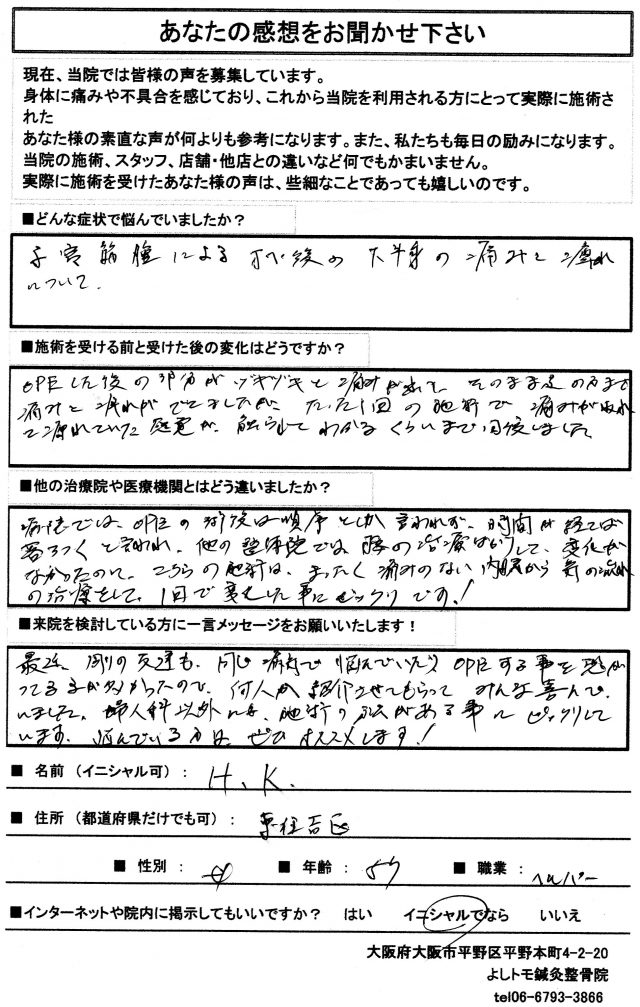 あなたの感想をお聞かせ下さい
現在、当院では皆様の声を募集しています。
身体に痛みや不具合を感じており、これから当院を利用される方にとって実際に施術さ
れた
あなた様の素直な声が何よりも参考になります。また、私たちも毎日の励みになります。
当院の施術、スタッフ、店舗・他店との違いなど何でもかまいません。
実際に施術を受けたあなた様の声は、些細なことであっても嬉しいのです。
■どんな症状で悩んでいましたか？
子宮筋腫による オペ後の 下半身の 痛みと 痺れ
について.
■施術を受ける前と受けた後の変化はどうですか？
OPEした後の部分がズキズキと痛みが出て、そのまま足の方まで
痛みと痺れがでてましたが、たった1回の施術で痛みが取れ
て痺れていた感覚が、触られてわかるくらいまで回復しました
■他の治療院や医療機関とはどう違いましたか？
病院では、OPEの術後は順序としか言われず、時間が経てば
落ちつくと言われ、他の整体院では、腰の治療ばかりして、変化が
なかったのに、こちらの施術は、まったく痛みのない内臓から の
の治療をして、1回で変化した事にビックリです!
■来院を検討している方に一言メッセージをお願いいたします！
最近、周りの友達も、同じ病気で悩んでいたり OPEする事を
てる 多かったので、何人か紹介させてもらって みんな喜んで
いました。婦人科以外にも、施術の方法がある事に ビックリして
います。悩んでいる方は、ぜひオススメします!
■ 名前（イニシャル可）： H.K.
■ 住所（都道府県だけでも可）： 東住吉区
■ 性別： 女 ■ 年齢： 57 ■ 職業： ヘルパー
■インターネットや院内に掲示してもいいですか？ はい イニシャルでなら いいえ
大阪府大阪市平野区平野本町4-2-20
よしトモ鍼灸整骨院
tel06-6793-3866